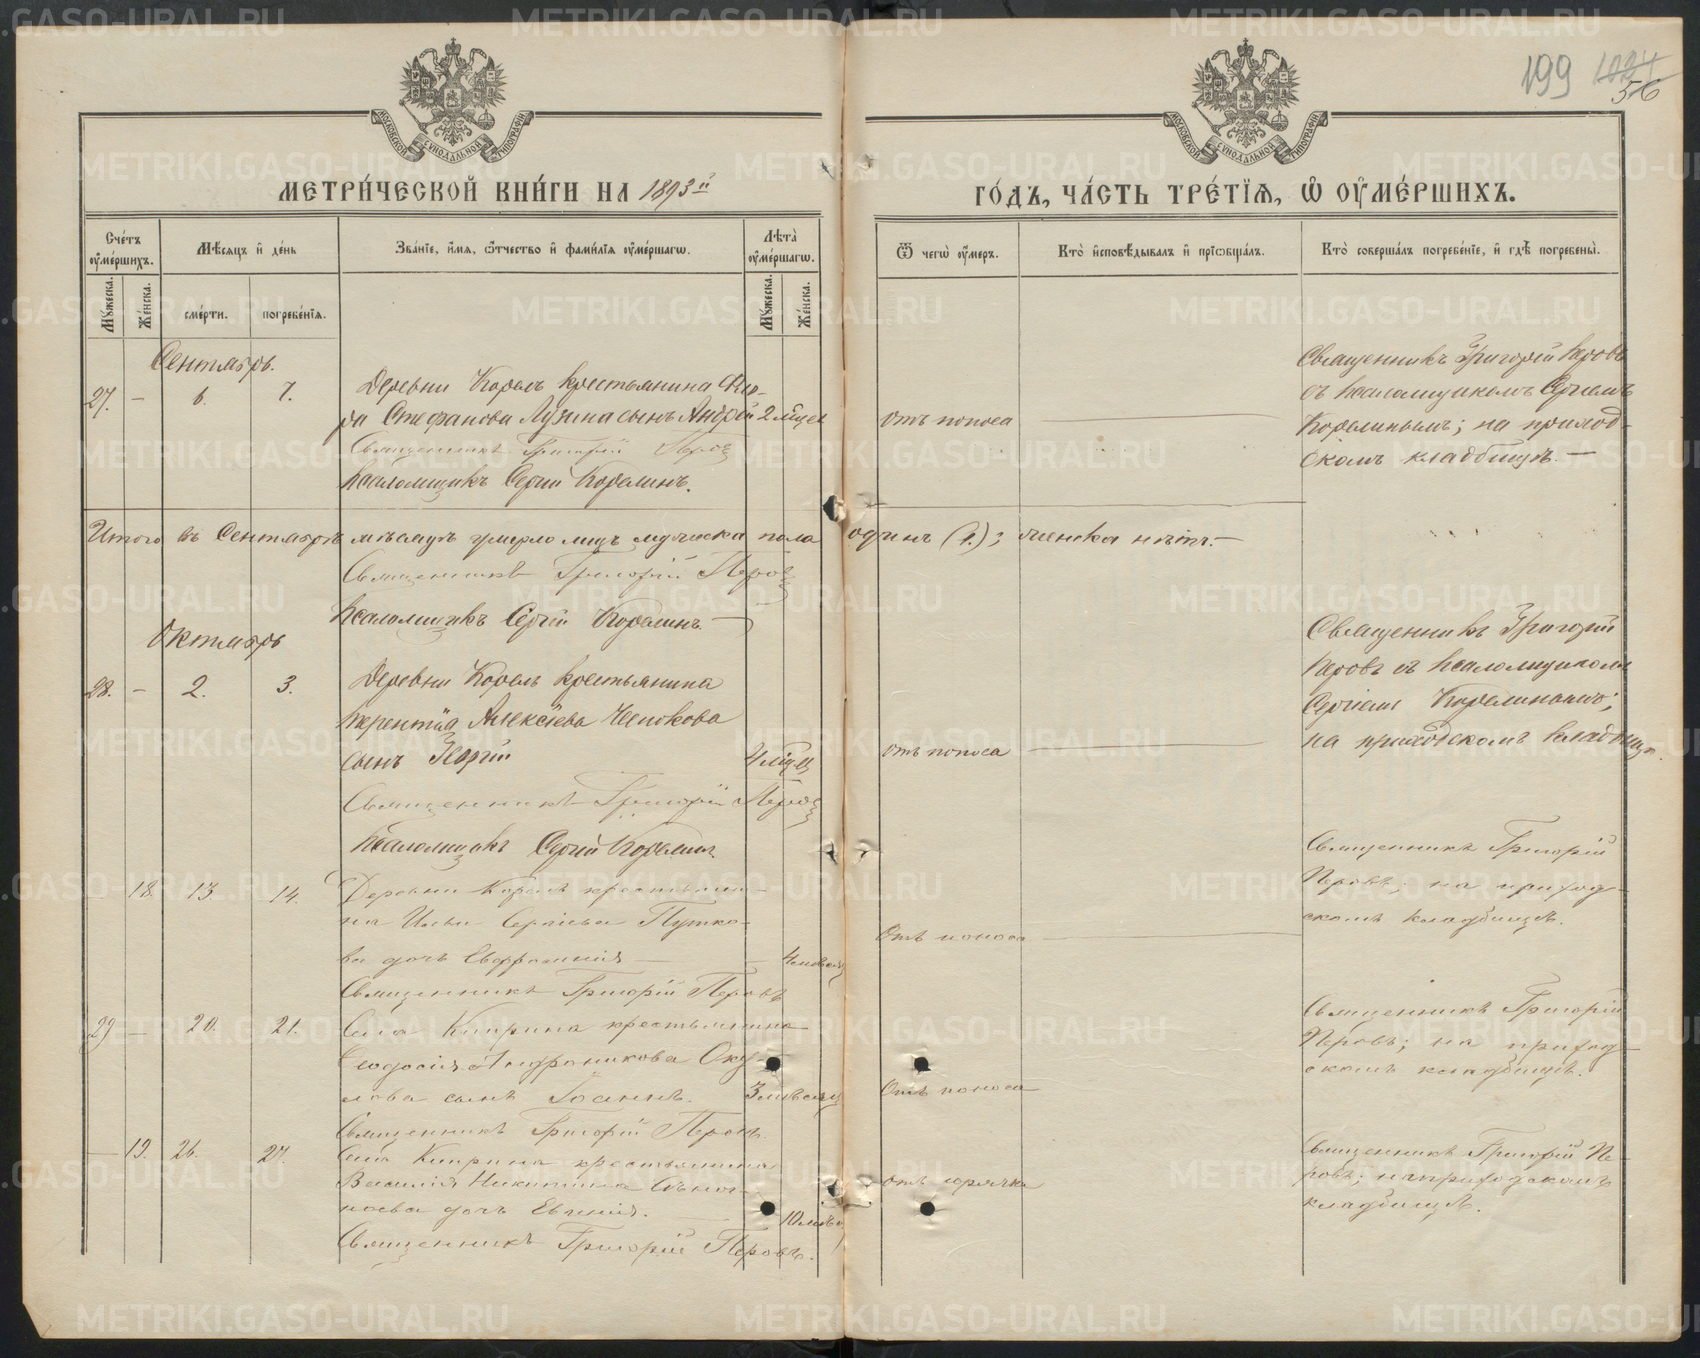 199 1024
56
МЕТРИ́ЧЕСКОЙ КНИ́ГИ НА 1893й
ГО́ДЪ, ЧА́СТЬ ТРЕ́ТЇЯ, Ѡ ОУМЕ́РШИХЪ.
Счетъ оумершихъ.
Мꙋжеска.
Женска.
Мѣсяцъ и день
смерти.
погребенїя.
Званїе, имя, отчество и фамилїя оумершагѡ.
Лѣта оумершагѡ.
Мꙋжеска.
Женска.
Ѿ чегѡ оумеръ.
Кто исповѣдывалъ и прїѡбщалъ.
Кто совершалъ погребенїе, и гдѣ погребены.
Сентябрь.
27. — 6. 7.
Деревни Корелъ крестьянина
ра Стефанова Лузина сынъ Андрей 2 мѣсец
Священникъ Григорій Перовъ
Псаломщикъ Сергій Корелинъ.
отъ поноса
Священникъ Григорій Перовъ
съ псаломщикомъ Сергіемъ
Корелинымъ; на приход-
скомъ кладбищѣ. —
Итого въ Сентябрѣ мѣсяцѣ умерло лицъ мужеска пола одинъ (1.); женска нѣтъ. —
Священникъ Григорій Перовъ
Псаломщикъ Сергій Корелинъ
Октябрь
28. — 2. 3.
Деревни Корелъ крестьянина
Терентія Алексіева Чеснокова
сынъ Георгій
4 мѣсец
Священникъ Григорій Перовъ
Псаломщикъ Сергій Корелинъ
отъ поноса
Священникъ Григорій
Перовъ съ псаломщикомъ
Сергіемъ Корелинымъ;
на приходскомъ кладбищѣ.
— 18. 13. 14.
Деревни Корелъ крестьяни-
на Ильи Сергіева Путко-
ва дочь Евфросинія —
Священникъ Григорій Перовъ
Отъ поноса
Священникъ Григорій
Перовъ; на приход-
скомъ кладбищѣ.
29 — 20. 21.
Села Киприна крестьянина
Ѳеодосія Андроникова Оку-
лова сынъ Іоаннъ.
3 мѣсяц
Священникъ Григорій Перовъ.
Отъ поноса
Священникъ Григорій
Перовъ; на приход-
скомъ кладбищѣ.
— 19. 26. 27.
Села Киприна крестьянина
Василія Никитина
дочь Евгенія.
Священникъ Григорій Перовъ.
отъ горячки
Священникъ Григорій Пе-
ровъ; на приходскомъ
кладбищѣ.
METRIKI.GASO-URAL.RU